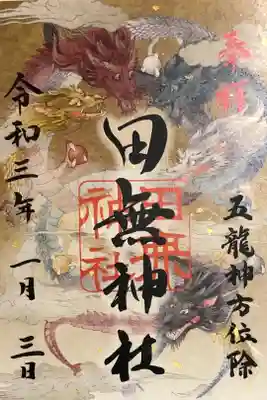 奉拝
五龍神方位除
田無神社
田無神社
令和三年 一月 三日